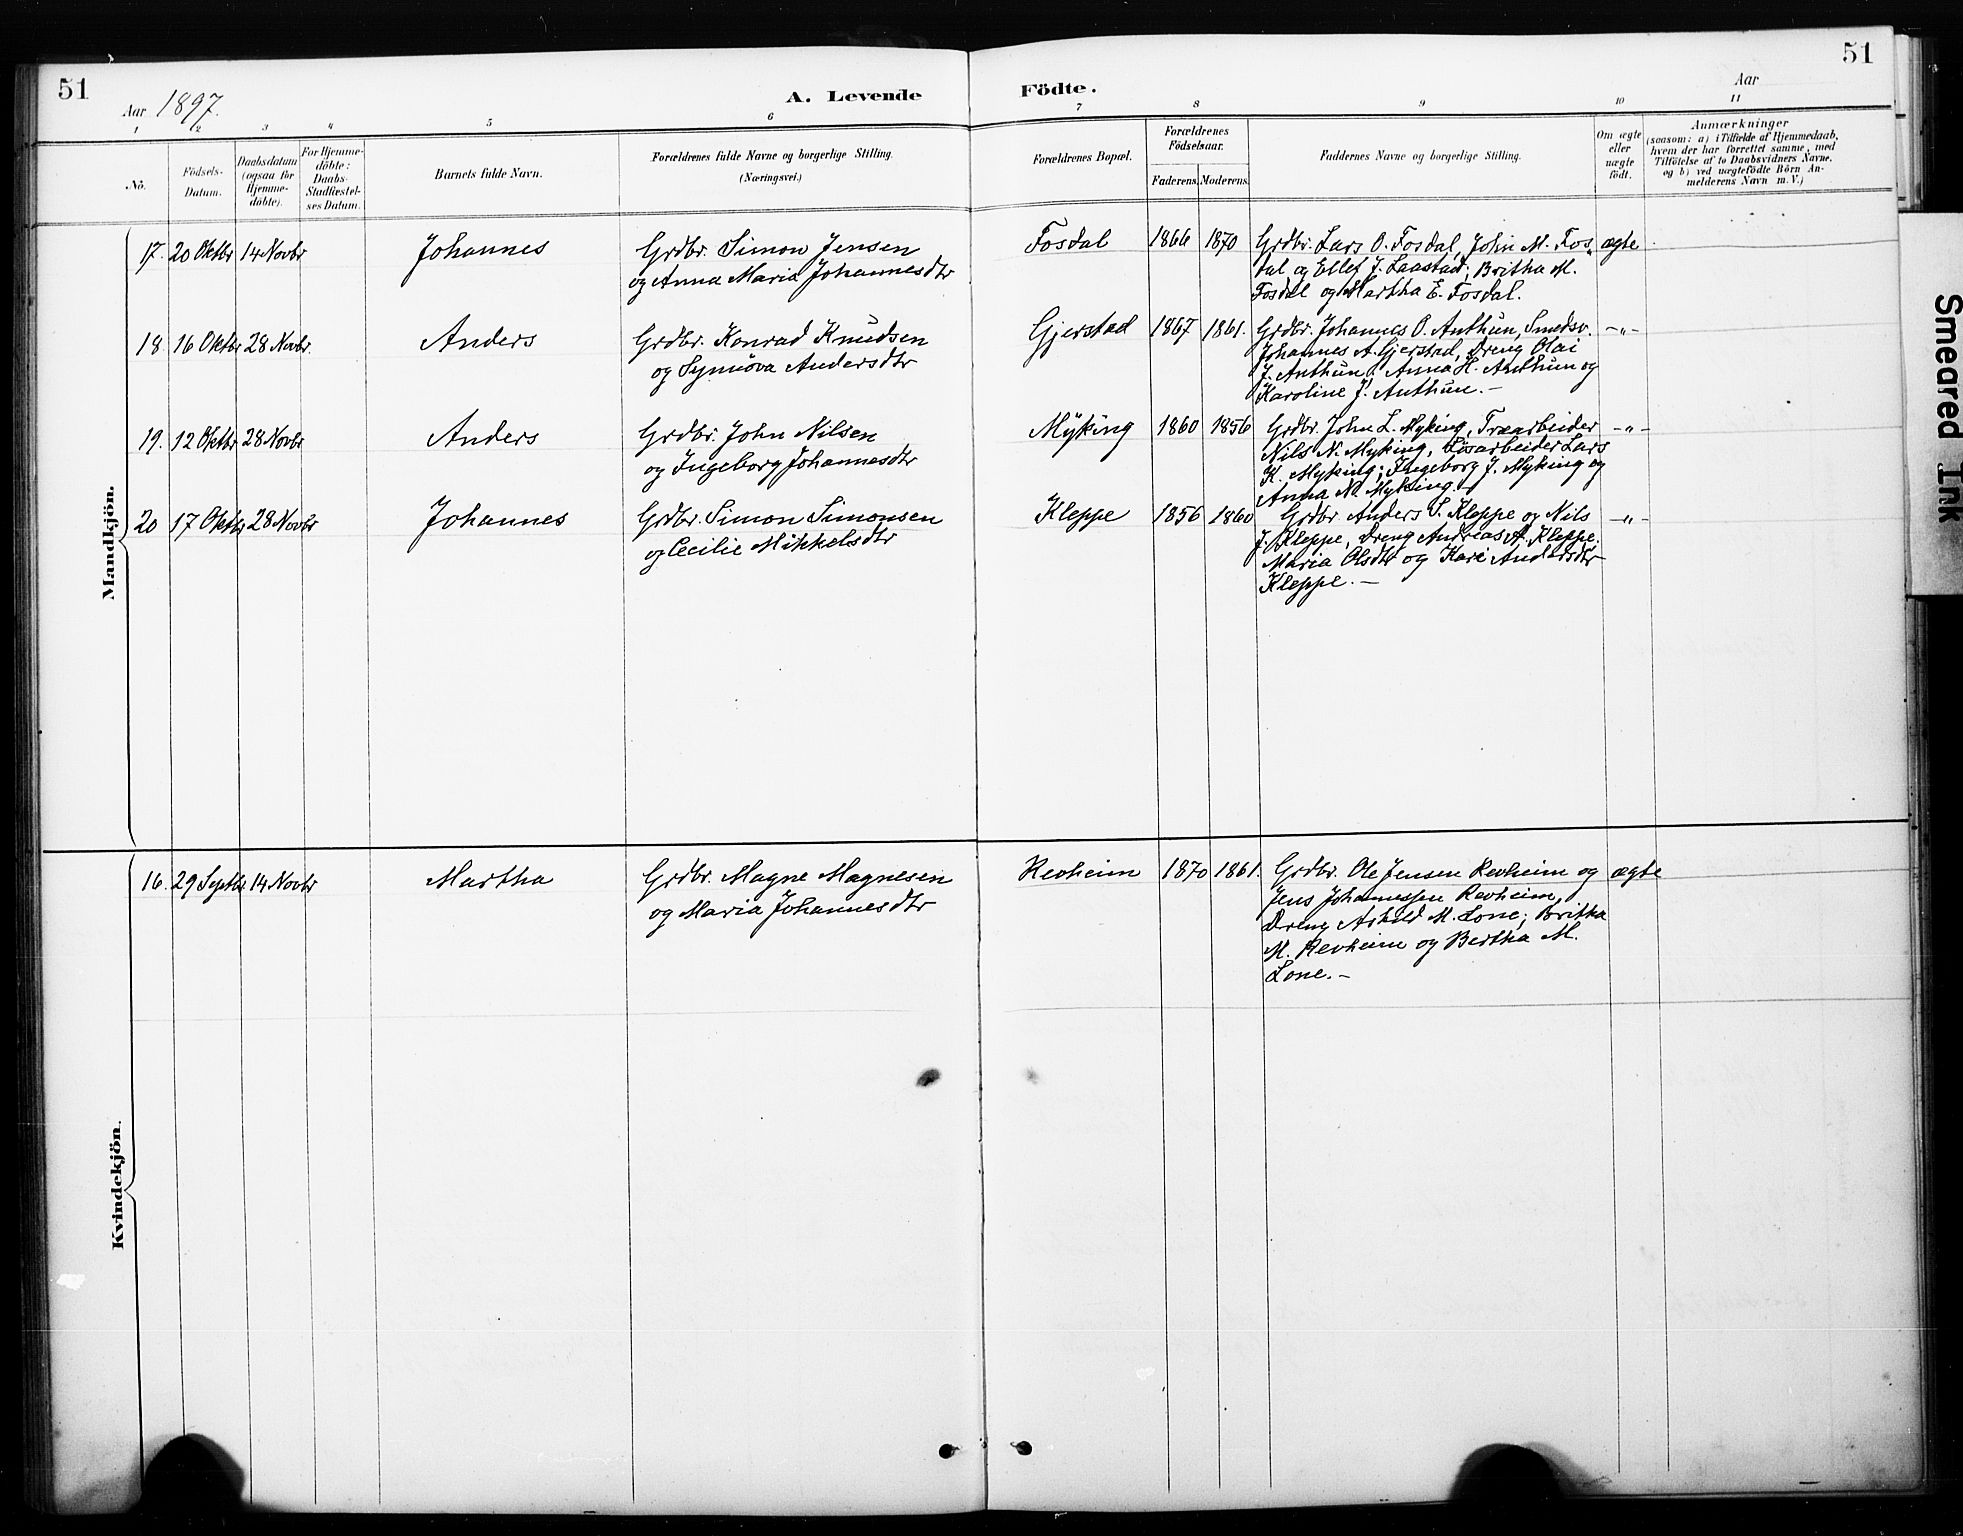 51
51
Aar 1897.
A. Levende Födte.
Aar
1 2 3 4 5 6 7 8 9 10 11
No.
Födsels-
Datum.
Daabsdatum
(ogsaa for
Hjemme-
döbte).
For Hjemme-
döbte:
Daabs-
Stadfæstel-
ses Datum.
Barnets fulde Navn.
Forældrenes fulde Navne og borgerlige Stilling.
(Næringsvei.)
Forældrenes Bopæl.
Forældrenes
Födselsaar.
Faderens. Moderens.
Faddernes Navne og borgerlige Stilling.
Om ægte
eller
uægte
födt.
Anmærkninger
(saasom: a) i Tilfælde af Hjemmedaab,
hvem der har forrettet samme, med
Tilföielse af to Daabsvidners Navne,
og b) ved uægtefödte Börn An-
melderens Navn m. V.)
Mandkjön.
17. 20 Oktbr 14 Novbr Johannes
Grdbr. Simon Jensen
og Anna Maria Johannesdtr
Fosdal 1866 1870
Grdbr. Lars O. Fosdal, John M. Fos„
dal og Ellef J. Laastad; Britha M.
Fosdal og Martha E. Fosdal.
ægte
18. 16 Oktbr 28 Novbr. Anders
Grdbr. Konrad Knudsen
og Synnöva Andersdtr
Gjerstad 1867 1861.
Grdbr. Johannes O. Anthun, Smedsv.
Johannes A. Gjerstad, Dreng Olai
J. Anthun; Anna H. Anthun og
Karoline J. Anthun. –
–„–
19. 12 Oktbr 28 Novbr Anders
Grdbr. John Nilsen
og Ingeborg Johannesdtr
Myking 1860 1856
Grdbr. John L. Myking, Træarbeider
Nils N. Myking, Lösarbeider Lars
K. Myking; Ingeborg J. Myking og
Anna N. Myking.
–„–
20 17 Oktbr 28 Novbr Johannes
Grdbr. Simon Simonsen
og Cecilie Mikkelsdtr
Kleppe 1856 1860
Grdbr. Anders S. Kleppe og Nils
J. Kleppe, Dreng Andreas A. Kleppe.
Maria Olsdtr og Kari Andersdtr
Kleppe. –
–„–
Kvindekjön.
16. 29 Septbr 14 Novbr Martha
Grdbr. Magne Magnesen
og Maria Johannesdtr
Revheim 1870 1861.
Grdbr. Ole Jensen Revheim og
Jens Johannessen Revheim,
Dreng M. Lone; Britha
M. Revheim og Bertha M.
Lone. –
ægte
Smeared Ink